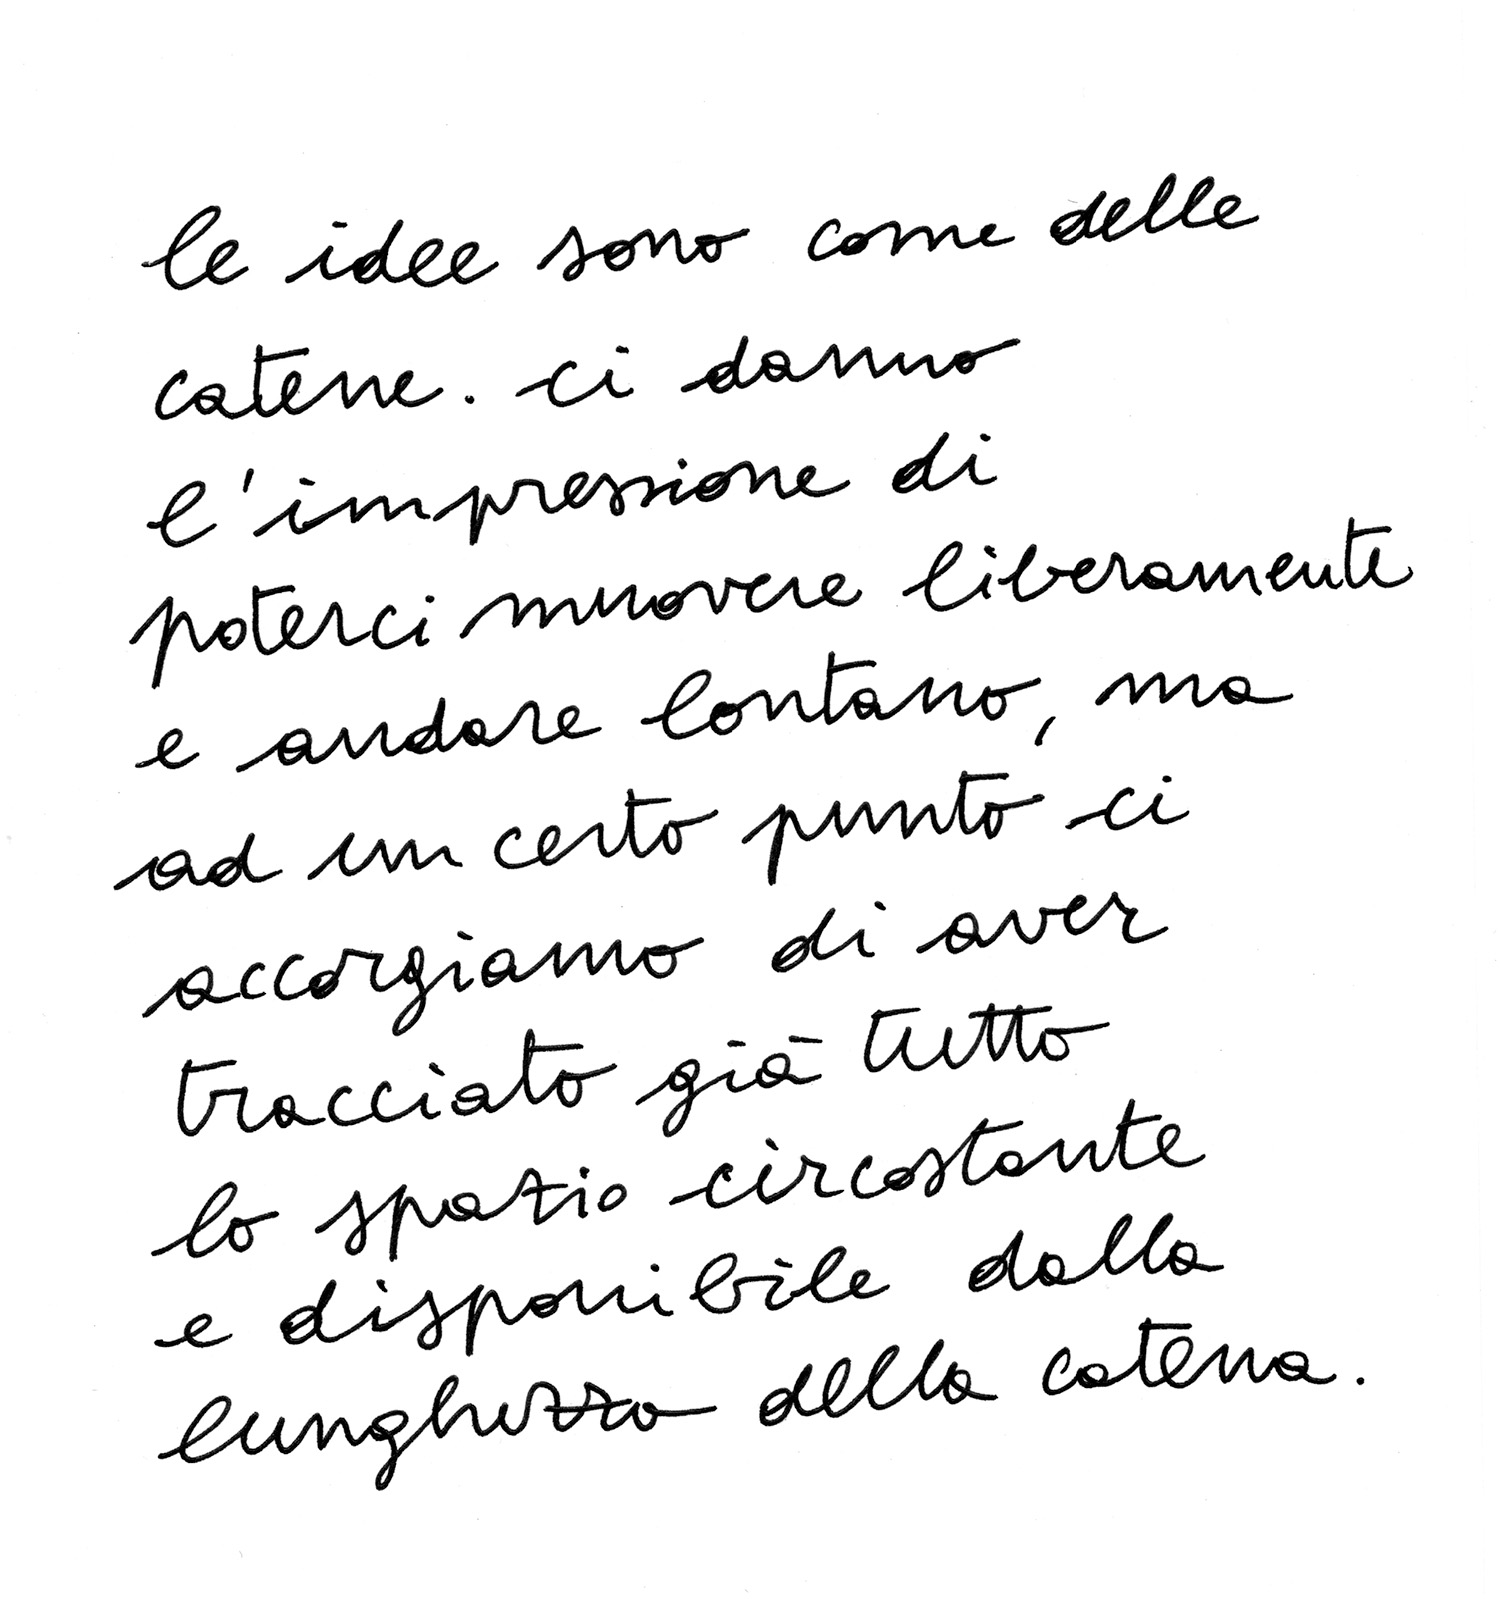 le idee sono come delle
catene. ci danno
l'impressione di
poterci muovere liberamente
e andare lontano, ma
ad un certo punto ci
accorgiamo di aver
tracciato già tutto
lo spazio circostante
e disponibile dalla
lunghezza della catena.